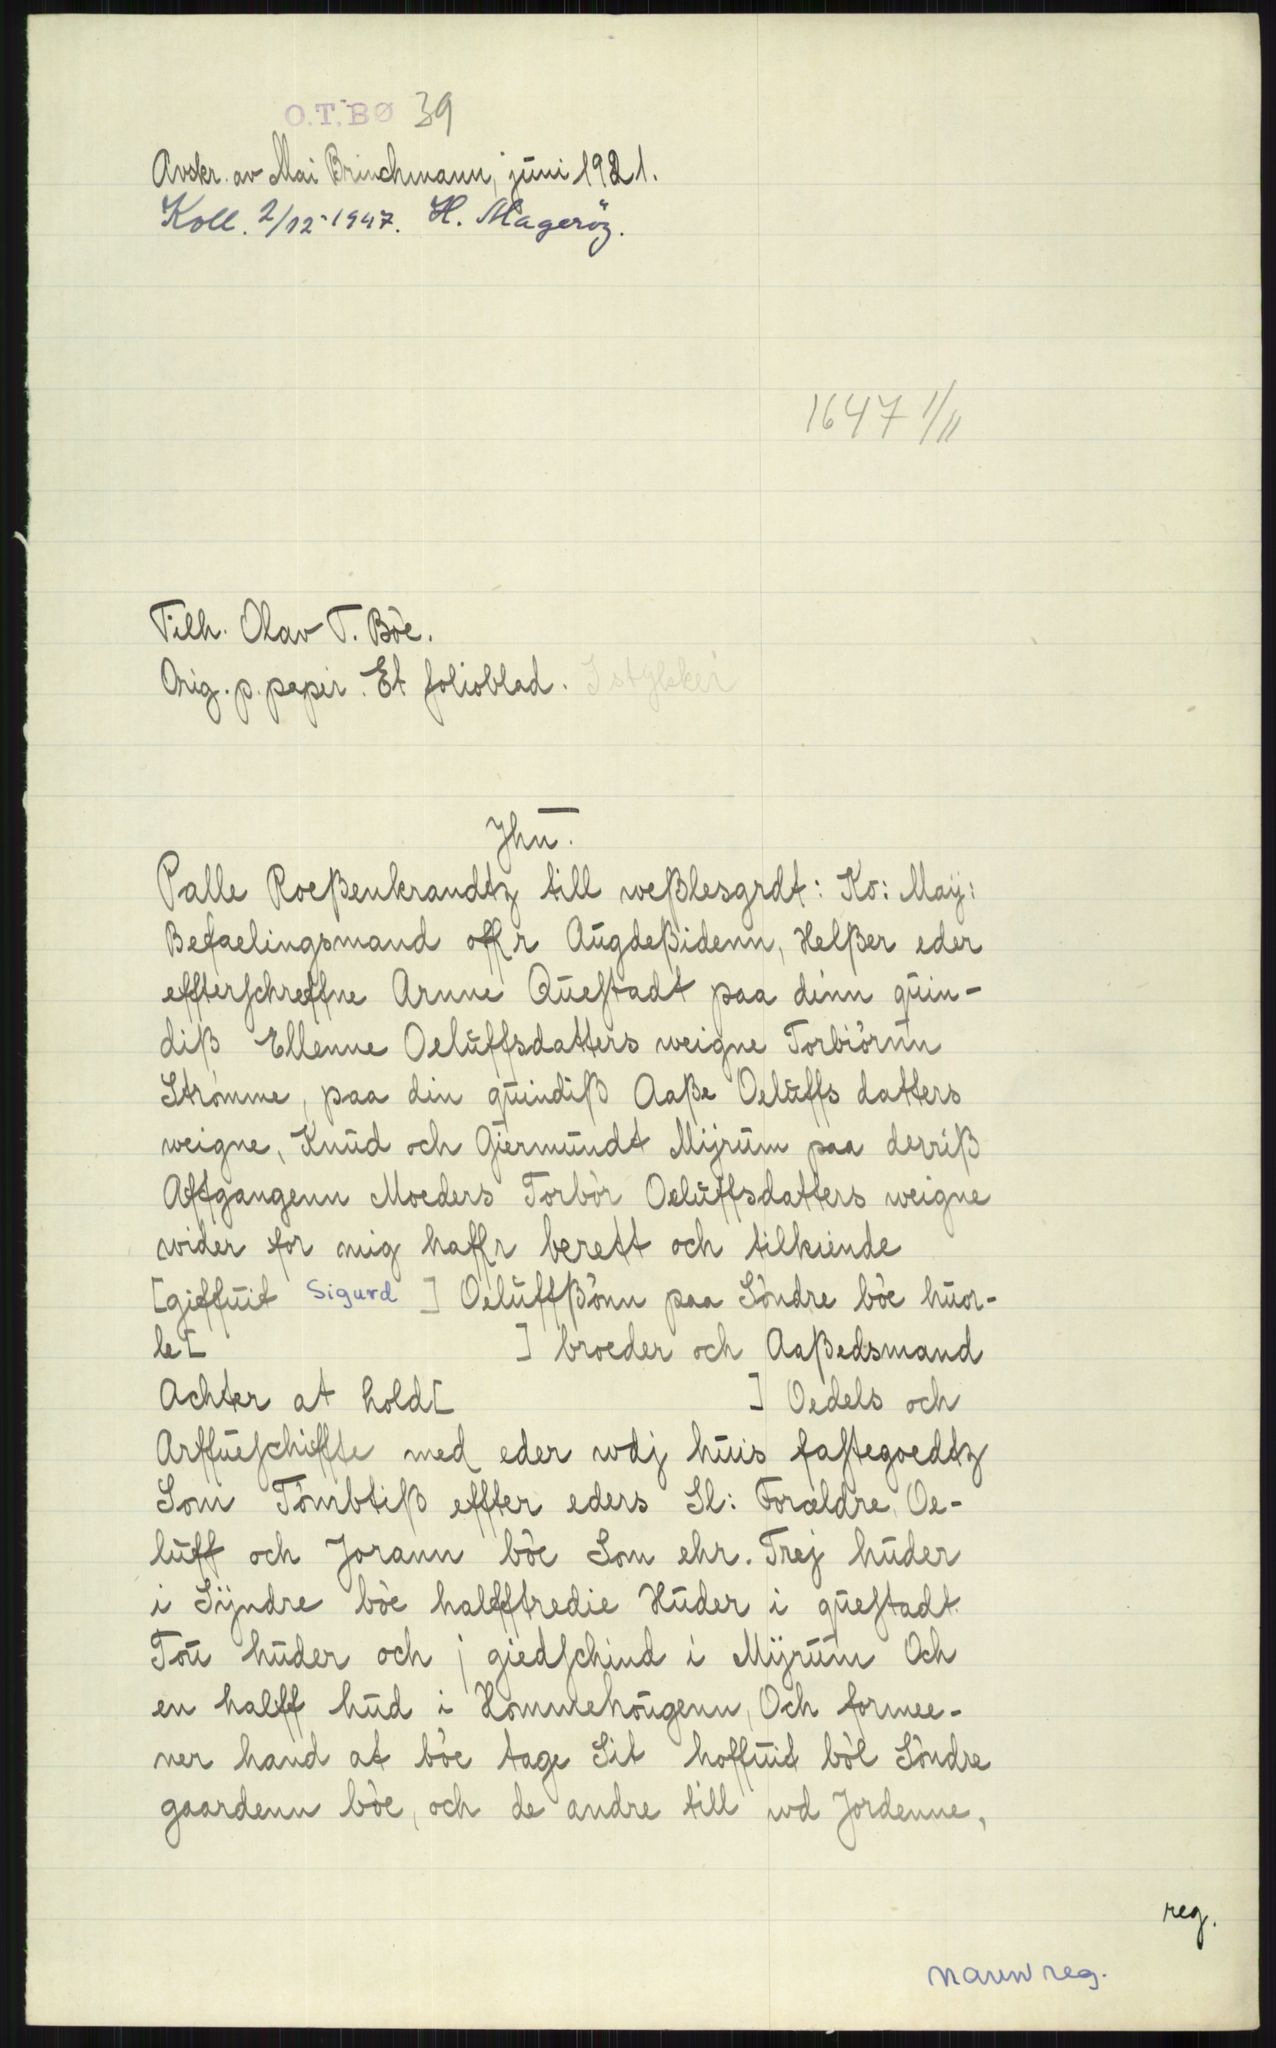 O.T.BØ 39
Avskr. av Mai Brinchmann, juni 1921.
Koll. 2/12-1947. H. Magerøy.
1647 1/11
Tilh. Olav T. Bòe.
Orig. p. papir. Et folioblad. I stykker
Jhū.
Palle Roeßenkrandtz till weßlesgrdt: Ko: Maÿ:
Befaelingsmand offr Augdeßidenn, Helßer eder
effterschreffne Arnne Questadt paa dinn quin-
diß Ellenne Oeluffsdatters weigne Torbiörnn
Strömme, paa din quindiß Aaße Oeluffs datters
weigne, Knud och Gjermundt Mÿrum paa derriß
Affgangenn Moeders Torbòr Oeluffsdatters weigne
wider for mig haffr berett och tilkiende
[gieffuit Sigurd ] Oeluffßònn paa Sòndre bòe huor-
le[ ] broeder och Aaßedsmand
Achter at hold[ ] Oedels och
Arffueschiffte med eder wdj huis fastegoedtz
Som Tòmbtiß effter eders Sl: Forældre, Oe-
luff och Jorann bòe Som ehr. Trej huder
i Sÿndre bòe halfftredie Huder i questadt
Tou huder och j giedschind i Mÿrum Och
en halff hud i Hommehougenn, Och formee-
ner hand at bòe tage Sit hoffuit bòl Sòndre
gaardenn bòe, och de andre till wd Jordenne,
reg.
navnreg.